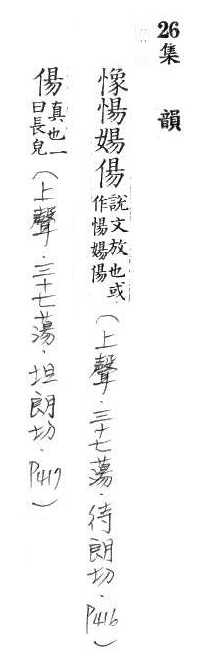 26集 韻
憞惕婸偒說文放也或作惕婸偒(上聲.三十七蕩.待朗切.P416)
偒真也一曰長皃(上聲.三十七蕩.坦朗切.P417)